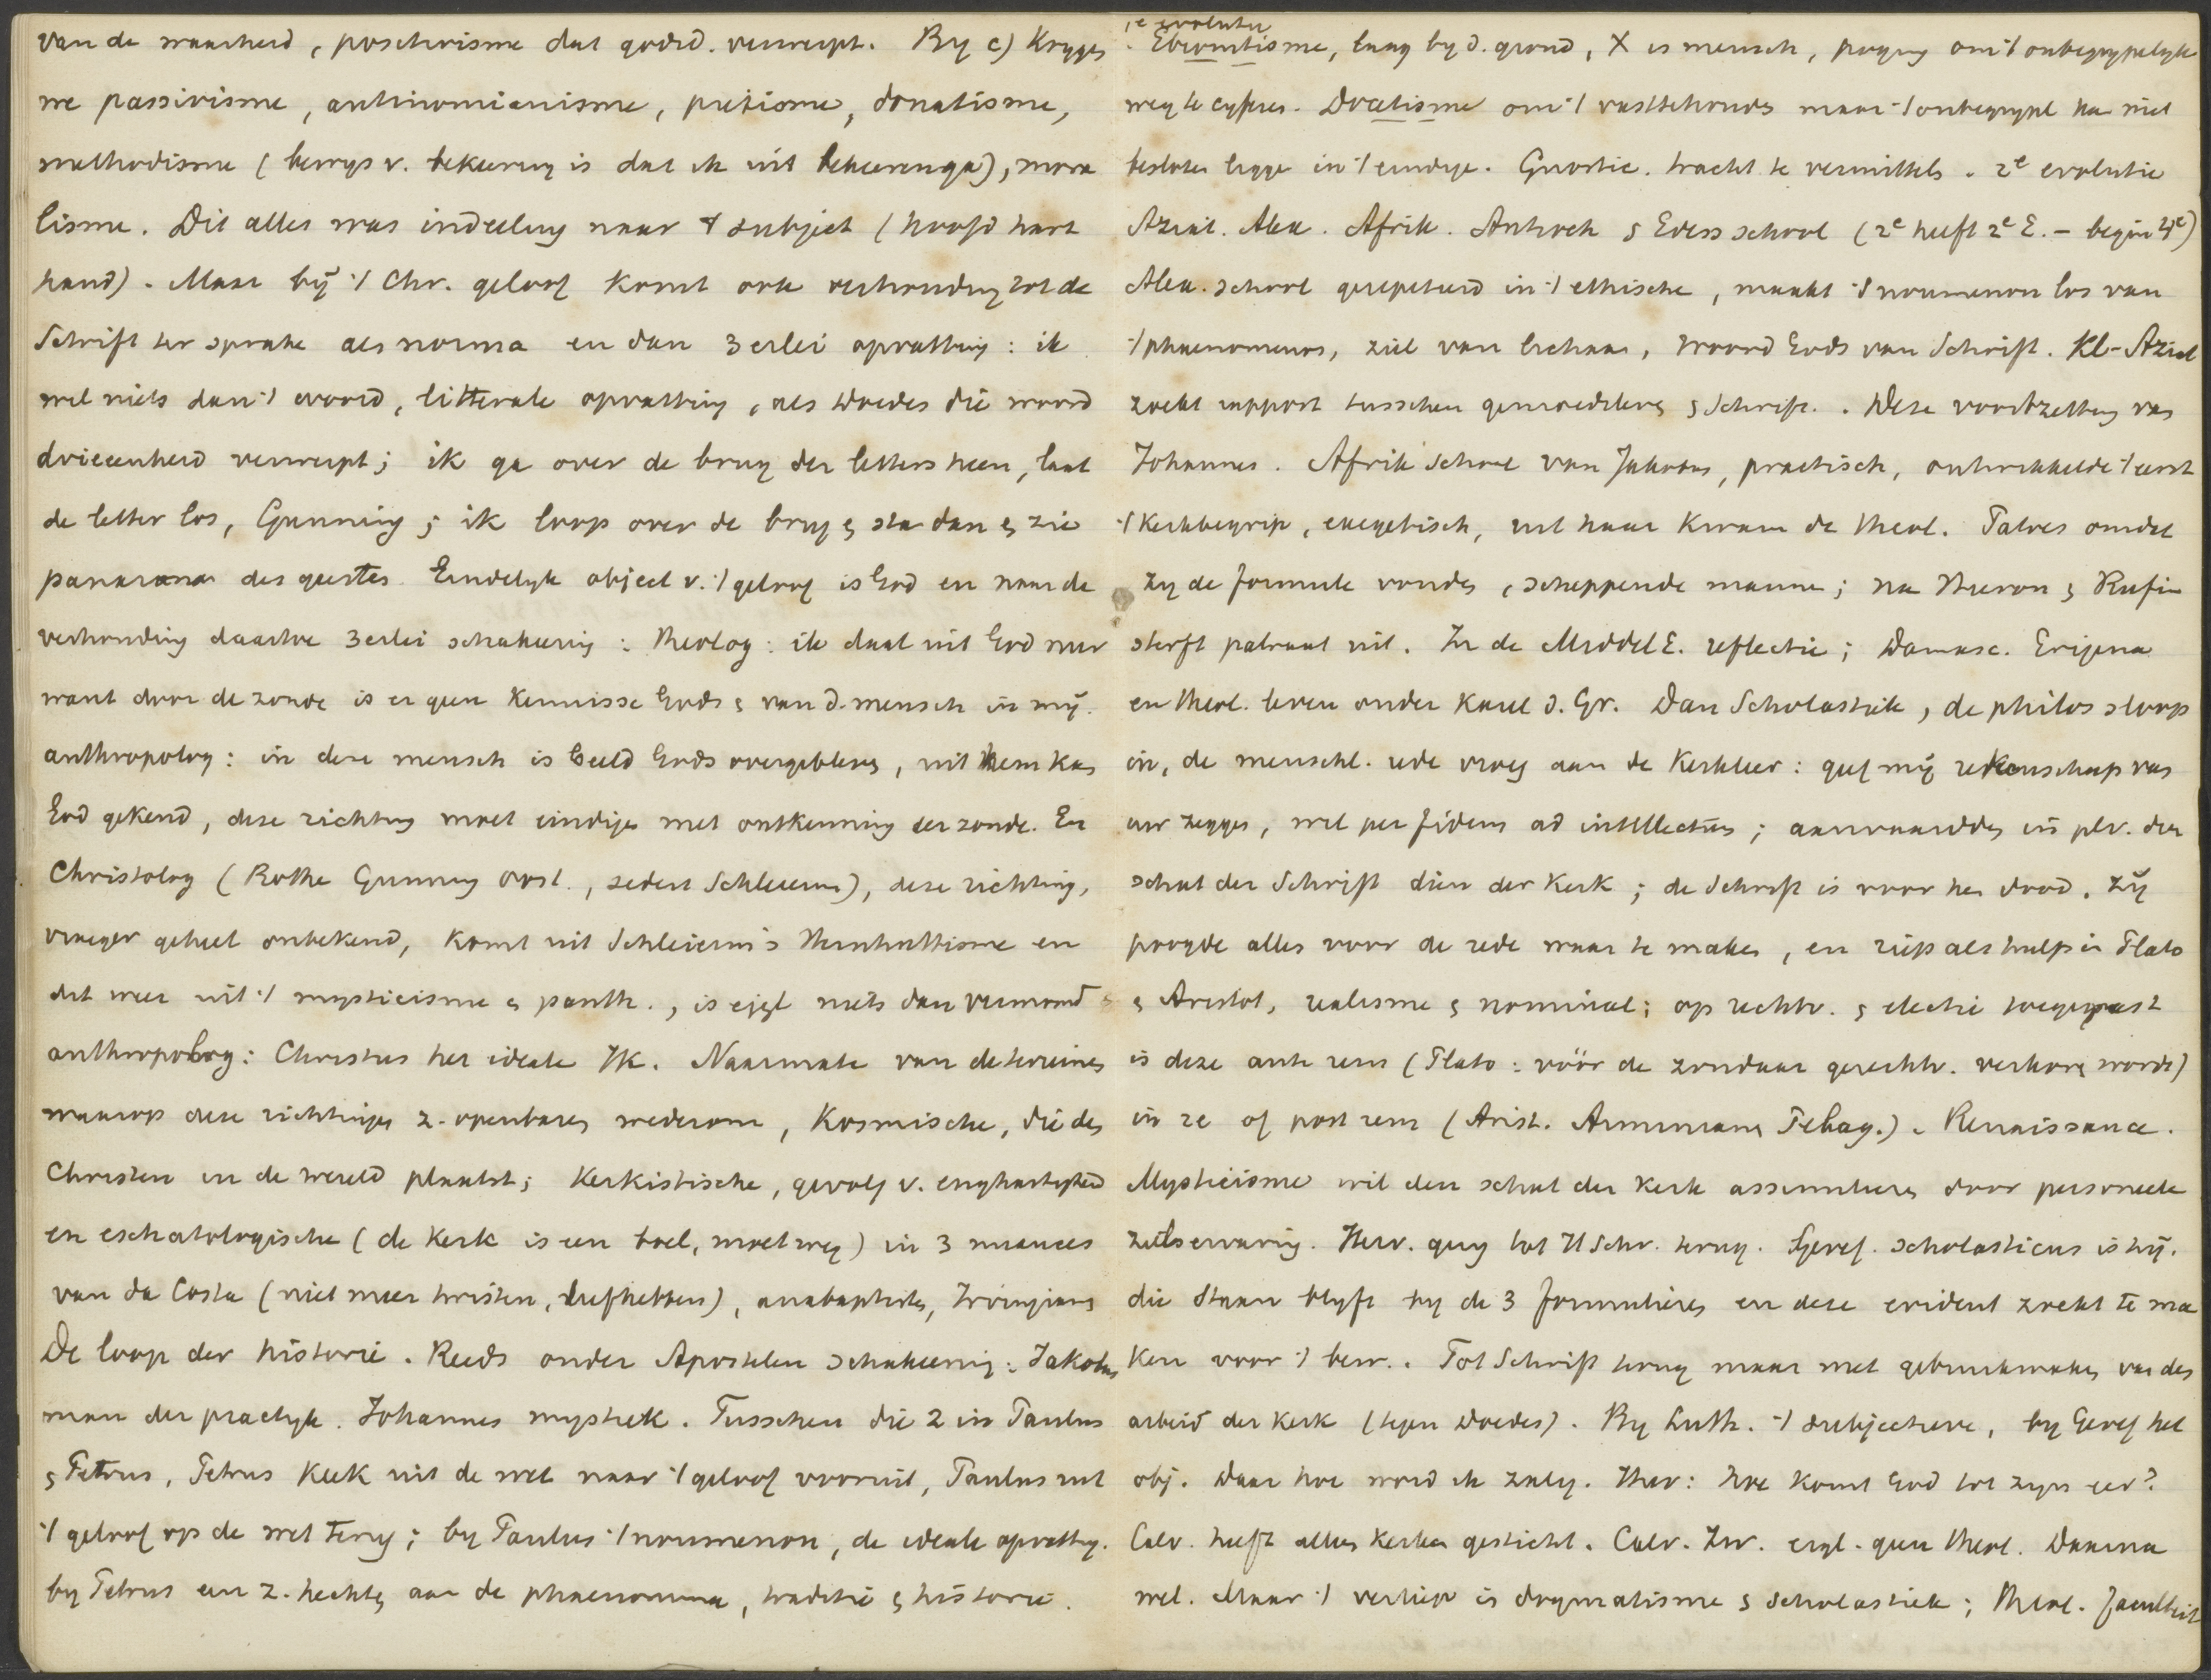 van de waarheid, positivisme dat godsd. verwerpt. By c) krygen
we passivisme, antinomianisme, piëtisme, donatisme,
methodisme (bewys v. bekeering is dat ik uit bekeeren ga), mora
lisme. Dit alles was indeeling naar 't subject (hoofd hart
hand). Maar bij 't Chr. geloof komt ook verhouding tot de
Schrift ter sprake als norma en dan 3erlei opvatting: ik
wil niets dan 't woord, litterale opvatting, als Doedes die woord
drieeenheid verwerpt; ik ga over de brug der letters heen, laat
de letter los, Gunning; ik loop over de brug & sta dan & zie
panorama des geestes. Eindelyk object v. 't geloof is God en naar de
verhouding daartoe 3erlei schakeering: theolog: ik daal uit God neer
want door de zonde is er geen kennisse Gods & van d. mensch in mij.
anthropolog: in deze mensch is beeld Gods overgebleven, uit hem kan
God gekend, deze richting moet eindigen met ontkenning der zonde. En
Christolog (Rothe Gunning Oost., sedert Schleierm), deze richting,
vroeger geheel onbekend, komt uit Schleierm's Hernhuttisme en
dit weer uit 't mysticisme & panth., is eigl niets dan vermomd
anthropolog: Christus het ideale Ik. Naarmate van de terreinen
waarop deze richtingen z. openbaren wederom, Kosmische, die den
Christen in de wereld plaatst; Kerkistische, gevolg v. enghartigheid
en eschatologische (de Kerk is een boel, moet weg) in 3 nuances
van da Costa (niet meer twisten, liefhebben), anabaptisten, Irvingians
De loop der historie. Reeds onder Apostelen schakeering: Jakobus
man der practyk. Johannes mystiek. Tusschen die 2 in Paulus
& Petrus, Petrus keek uit de wet naar 't geloof vooruit, Paulus uit
't geloof op de wet terug; by Paulus 't noumenon, de ideale opvatting.
by Petrus een z. hechten aan de phaenomena, traditie & historie.
1e evolutie
Ebionitisme, laag by d. grond, X is mensch, poging om 't onbegrypelyke
weg te cyferen. Docetisme om 't vasttehouden maar 't onbegrypl kan niet
besloten liggen in 't eindige. Gnostic. tracht te vermittelen. 2e evolutie
Aziat. Alex. Afrik. Antioch & Edess school (2e helft 2e E. - begin 4e)
Alex. school gerepeteerd in 't ethische, maakt 't noumenon los van
't phaenomenon, ziel van lichaam, woord Gods van Schrift. Kl-Aziat
zoekt rapport tusschen gemoedsleven & Schrift. Deze voortzetting van
Johannes. Afrik school van Jakobus, practisch, ontwikkelde 't eerst
't Kerkbegrip, exegetisch, uit haar kwam de theol. Patres omdat
zy de formule vonden, scheppende mannen; na Hieron & Rufin
sterft patraat uit. In de MiddelE. reflectie; Damasc. Erigena
en theol. leven onder Karel d. Gr. Dan Scholastiek, de philos sloop
in, de menschl. rede vroeg aan de Kerkleer: geef mij rekenschap van
uw zeggen, wil per fidem ad intellectum; aanvaardden in plv. den
schat der Schrift dien der Kerk; de Schrift is voor hen dood. Zij
poogde alles voor de rede waar te maken, en riep als hulp in Plato
& Aristot, realisme & nominal; op rechtv. & electie toegepast
is deze ante rem (Plato: vóór de zondaar gerechtv. verkoren wordt)
in re of post rem (Arist. Arminiane Pelag.). Renaissance.
Mysticisme wil den schat der Kerk assimileren door personeele
zielservaring. Herv. ging tot H Schr. terug. Geref. scholasticus is hij.
die staan blyft by de 3 formulieren en deze evident zoekt te ma
ken voor 't bew. Tot Schrift terug maar met gebruikmaking van den
arbeid der Kerk (tegen Doedes). By Luth. 't subjectieve, by Geref het
obj. Daar hoe word ik zalig. Hier: hoe komt God tot zyn eer?
Calv. heeft alleen Kerken gesticht. Calv. Zw. eigl. geen theol. Daarna
wel. Maar 't verliep in dogmatisme & scholastiek; theol. faculteit